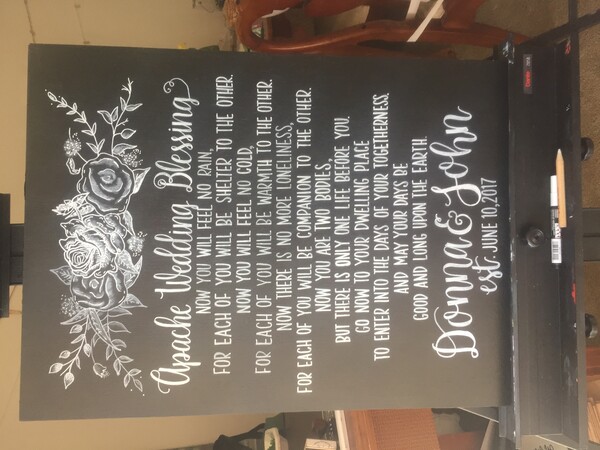 Apache Wedding Blessing
NOW YOU WILL FEEL NO RAIN,
FOR EACH OF YOU WILL BE SHELTER TO THE OTHER.
NOW YOU WILL FEEL NO COLD,
FOR EACH OF YOU WILL BE WARMTH TO THE OTHER.
NOW THERE IS NO MORE LONELINESS,
FOR EACH OF YOU WILL BE COMPANION TO THE OTHER.
NOW YOU ARE TWO BODIES,
BUT THERE IS ONLY ONE LIFE BEFORE YOU.
GO NOW TO YOUR DWELLING PLACE
TO ENTER INTO THE DAYS OF YOUR TOGETHERNESS,
AND MAY YOUR DAYS BE
GOOD AND LONG UPON THE EARTH.
Donna & John
est. JUNE 10, 2017